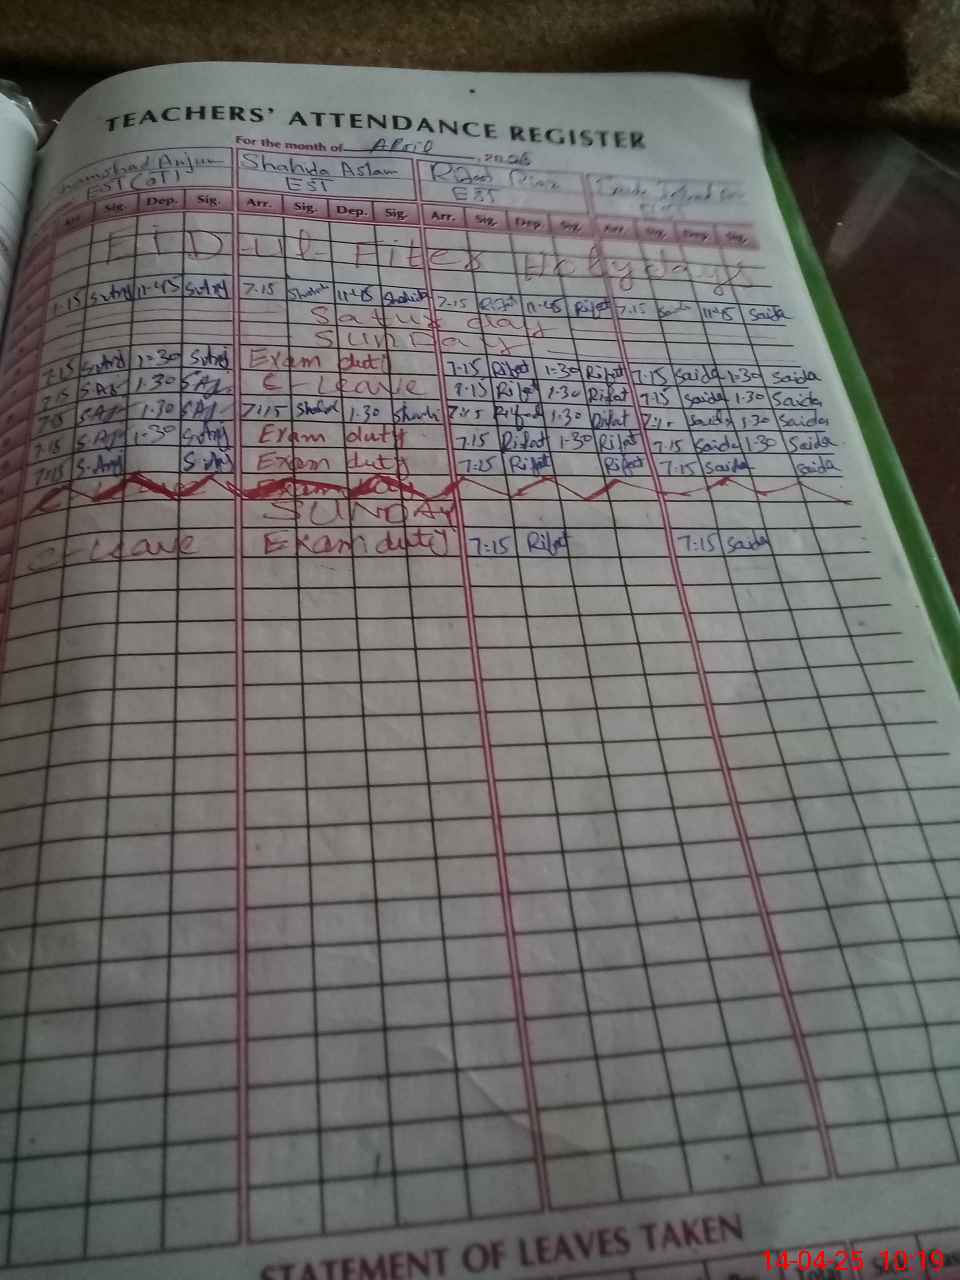 TEACHERS' ATTENDANCE REGISTER
For the month of April
Shamshad Anjum Shahida Aslam Rifat Riaz
EST (OT) EST EST
Arr. Sig. Dep. Sig. Arr. Sig. Dep. Sig. Arr. Sig. Dep. Sig. Arr. Sig. Dep. Sig.
EID-Ul-Fiter Holydays
7.15 11-45 7.15 Shahida 11-45 Shahida 7.15 Rifat 11-45 Rifat 7.15 Saida 11-45 Saida
Satur day
SUNDAY
7.15 1-30 Exam duty 7-15 Rifat 1-30 Rifat 7.15 Saida 1-30 Saida
7.15 1-30 C-Leave 7.15 Rifat 1-30 Rifat 7.15 Saida 1-30 Saida
7:15 1-30 7:15 1-30 Rifat 1-30 Rifat Saida 1-30 Saida
7.15 1-30 Exam duty 7.15 Rifat 1-30 Rifat 7.15 Saida 1-30 Saida
7:15 Exam duty 7:15 Rifat Rifat 7:15 Saida Saida
SUNDAY
C-Leave Exam duty 7:15 Rifat 7:15 Saida
STATEMENT OF LEAVES TAKEN
14-04-25 10:19